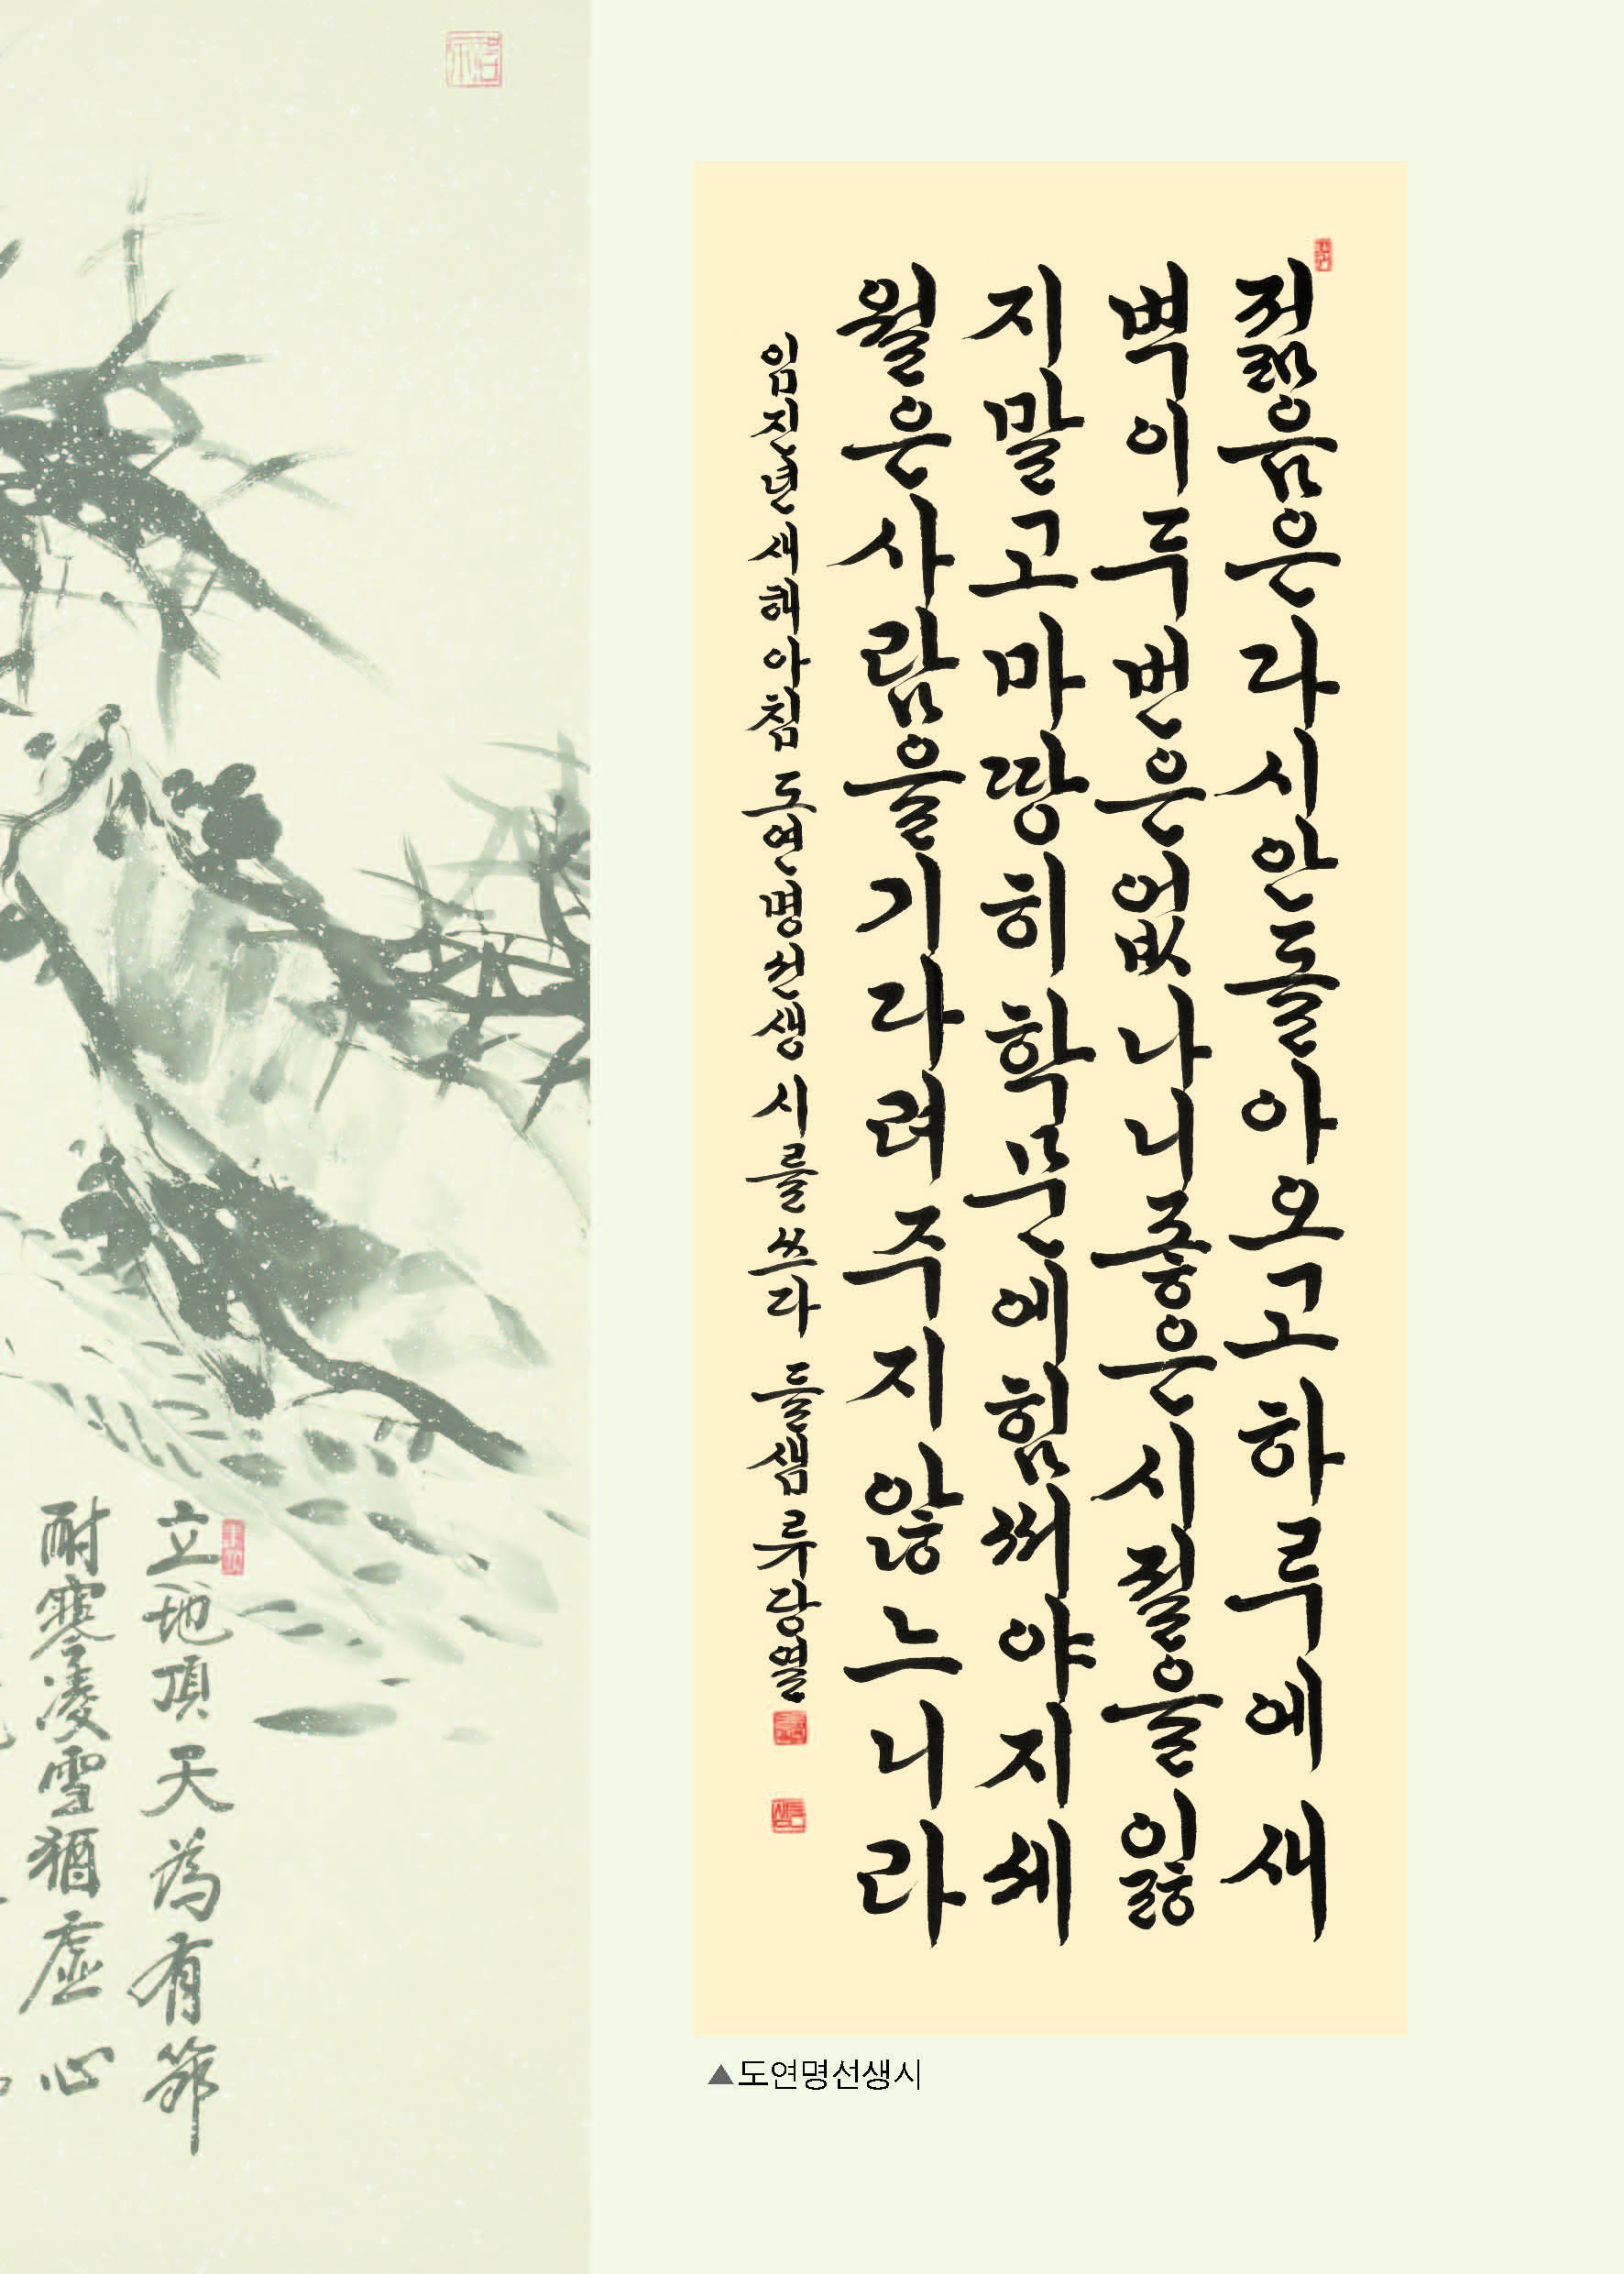 젊음은다시안돌아오고하루에새
벽이두번은없나니좋은시절을잃
지말고마땅히학문에힘써야지세
월은사람을기다려주지않느니라
임진년새해아침 도연명선생 시를쓰다 들샘 류당열
立地頂天為有節
耐寒凌雪猶虛心
▲도연명선생시